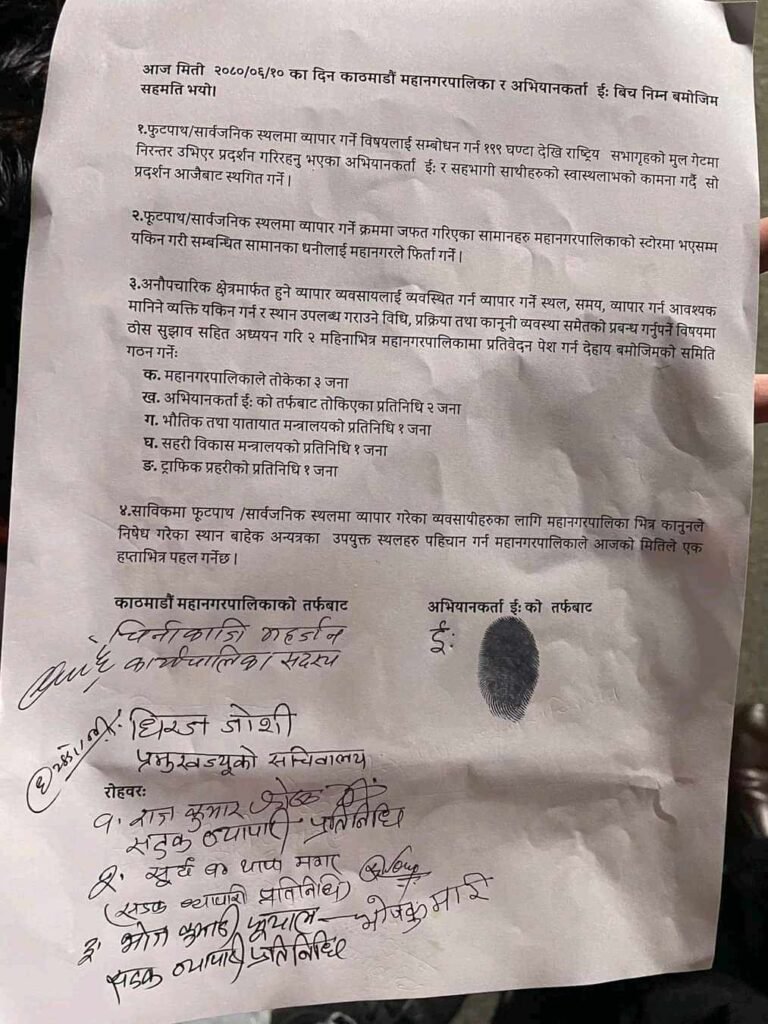 आज मिती २०८०/०६/१० का दिन काठमाडौं महानगरपालिका र अभियानकर्ता ईः बिच निम्न बमोजिम
सहमति भयो।
१.फुटपाथ/सार्वजनिक स्थलमा व्यापार गर्ने विषयलाई सम्बोधन गर्न १९९ घण्टा देखि राष्ट्रिय सभागृहको मुल गेटमा
निरन्तर उभिएर प्रदर्शन गरिरहनु भएका अभियानकर्ता ईः र सहभागी साथीहरुको स्वास्थलाभको कामना गर्दै सो
प्रदर्शन आजैबाट स्थगित गर्ने।
२.फूटपाथ/सार्वजनिक स्थलमा व्यापार गर्ने क्रममा जफत गरिएका सामानहरु महानगरपालिकाको स्टोरमा भएसम्म
यकिन गरी सम्बन्धित सामानका धनीलाई महानगरले फिर्ता गर्ने।
३.अनौपचारिक क्षेत्रमार्फत हुने व्यापार व्यवसायलाई व्यवस्थित गर्न व्यापार गर्ने स्थल, समय, व्यापार गर्न आवश्यक
मानिने व्यक्ति यकिन गर्न र स्थान उपलब्ध गराउने विधि, प्रक्रिया तथा कानूनी व्यवस्था समेतको प्रबन्ध गर्नुपर्ने विषयमा
ठोस सुझाव सहित अध्ययन गरि २ महिनाभित्र महानगरपालिकामा प्रतिवेदन पेश गर्न देहाय बमोजिमको समिति
गठन गर्नेः
क. महानगरपालिकाले तोकेका ३ जना
ख. अभियानकर्ता ईः को तर्फबाट तोकिएका प्रतिनिधि २ जना
ग. भौतिक तथा यातायात मन्त्रालयको प्रतिनिधि १ जना
घ. सहरी विकास मन्त्रालयको प्रतिनिधि १ जना
ङ. ट्राफिक प्रहरीको प्रतिनिधि १ जना
४.साविकमा फूटपाथ /सार्वजनिक स्थलमा व्यापार गरेका व्यवसायीहरुका लागि महानगरपालिका भित्र कानुनले
निषेध गरेका स्थान बाहेक अन्यत्रका उपयुक्त स्थलहरु पहिचान गर्न महानगरपालिकाले आजको मितिले एक
हप्ताभित्र पहल गर्नेछ।
काठमाडौं महानगरपालिकाको तर्फबाट
चिनीकाजि महर्जन
कार्यपालिका सदस्य
धिरज जोशी
प्रमुखज्यूको सचिवालय
अभियानकर्ता ईः को तर्फबाट
ईः
रोहवरः
१. राज कुमार
सडक व्यापारी प्रतिनिधि
२. सूर्य थापा मगर
(सडक व्यापारी प्रतिनिधि)
३. भोज कुमारी भूषाल भोजकुमारी
सडक व्यापारी प्रतिनिधि